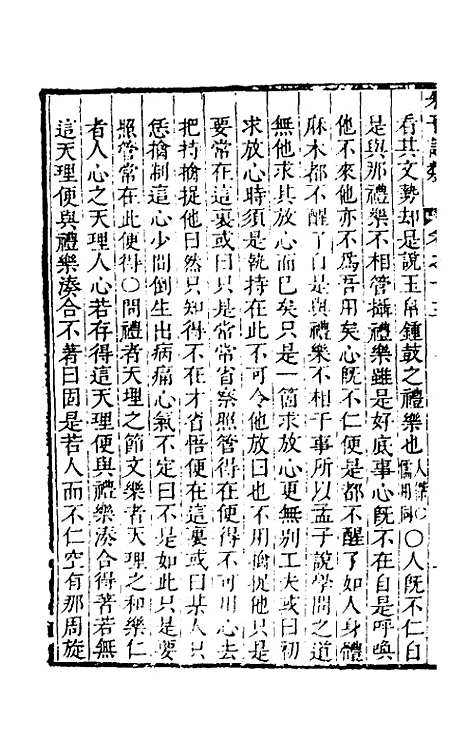 看其文勢却是說玉帛鍾鼓之禮樂也人傑○儒用同○人既不仁自
是與那禮樂不相管攝禮樂雖是好底事心既不在自是呼喚
他不來他亦不為吾用矣心既不仁便是都不醒了如人身體
麻木都不醒了自是與禮樂不相干事所以孟子說學問之道
無他求其放心而已矣只是一箇求放心更無別工夫或曰初
求放心時須是執持在此不可令他放曰也不用擒捉他只是
要常在這裏或曰只是常常省察照管得在便得不可用心去
把持擒捉他曰然只知得不在才省悟便在這裏或曰某人只
恁擒制這心少間倒生出病痛心氣不定曰不是如此只是要
照管常在此便得○問禮者天理之節文樂者天理之和樂仁
者人心之天理人心若存得這天理便與禮樂湊合得著若無
這天理便與禮樂湊合不著曰固是若人而不仁空有那周旋